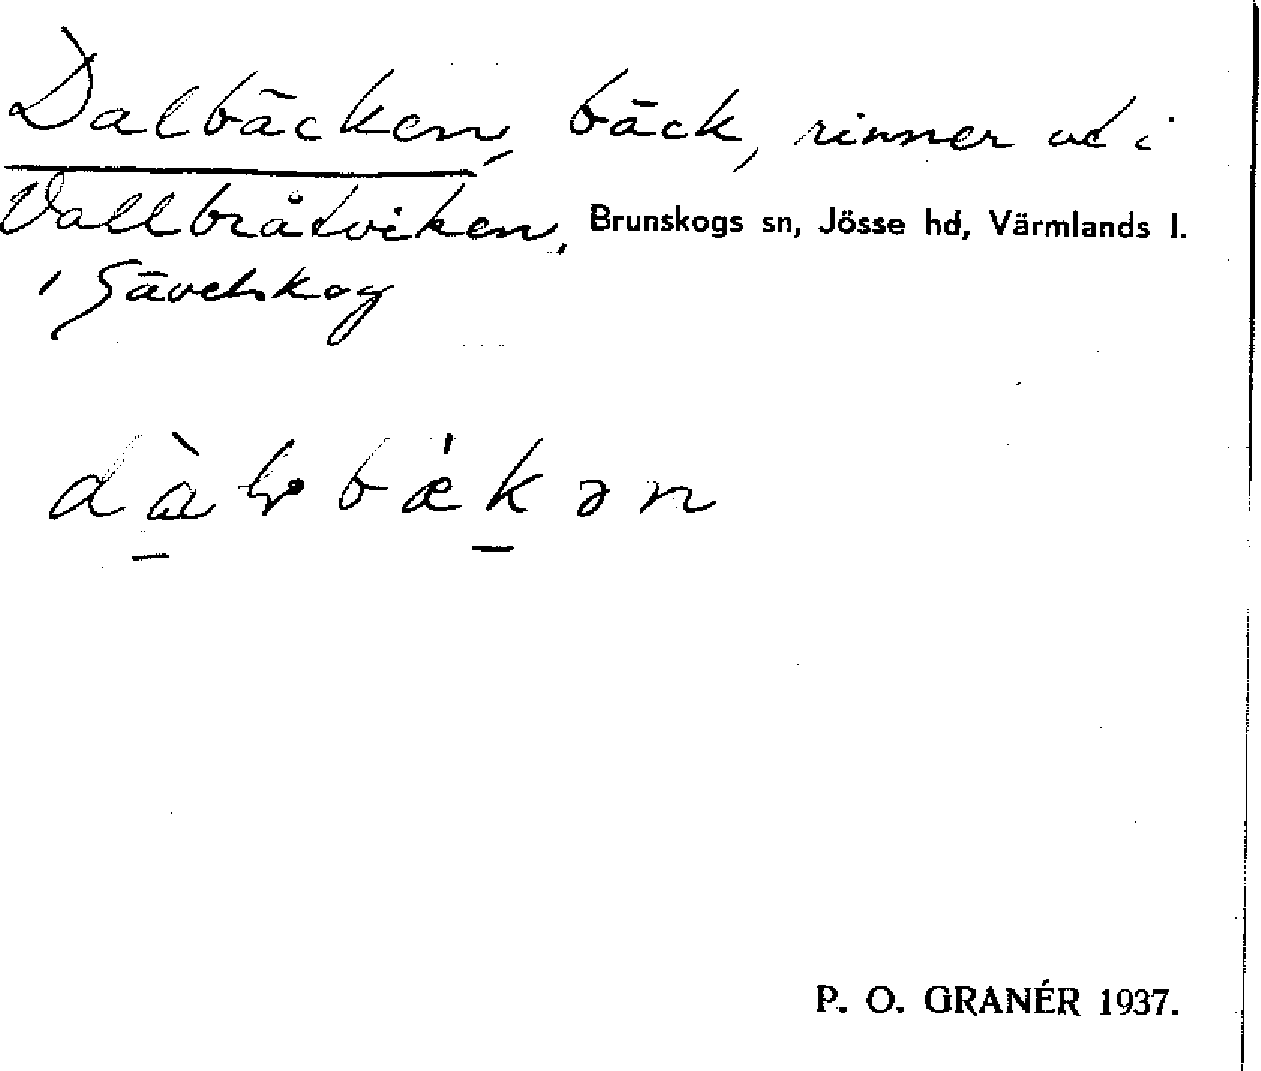 Dalbäcken, bäck, rinner ut i
Vallbråtviken, Brunskogs sn, Jösse hd, Värmlands l.
i Sävelskog
P. O. GRANÉR 1937.